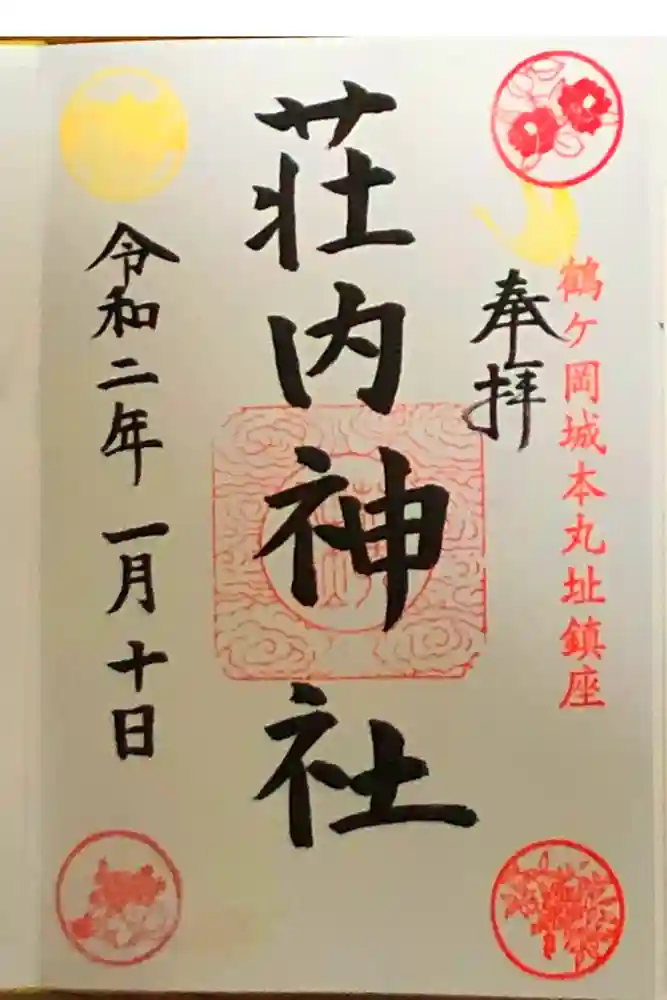 鶴ケ岡城本丸址鎮座
奉拝
荘内神社
令和二年一月十日